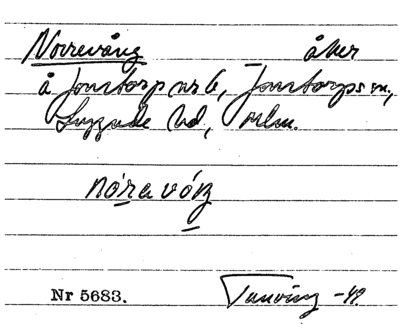 Norrevång _ åker
å Jonstorp nr 6, Jonstorps sn,
Luggude hd, Mlm.
nóra vóŋ
Nr 5683.
-42.